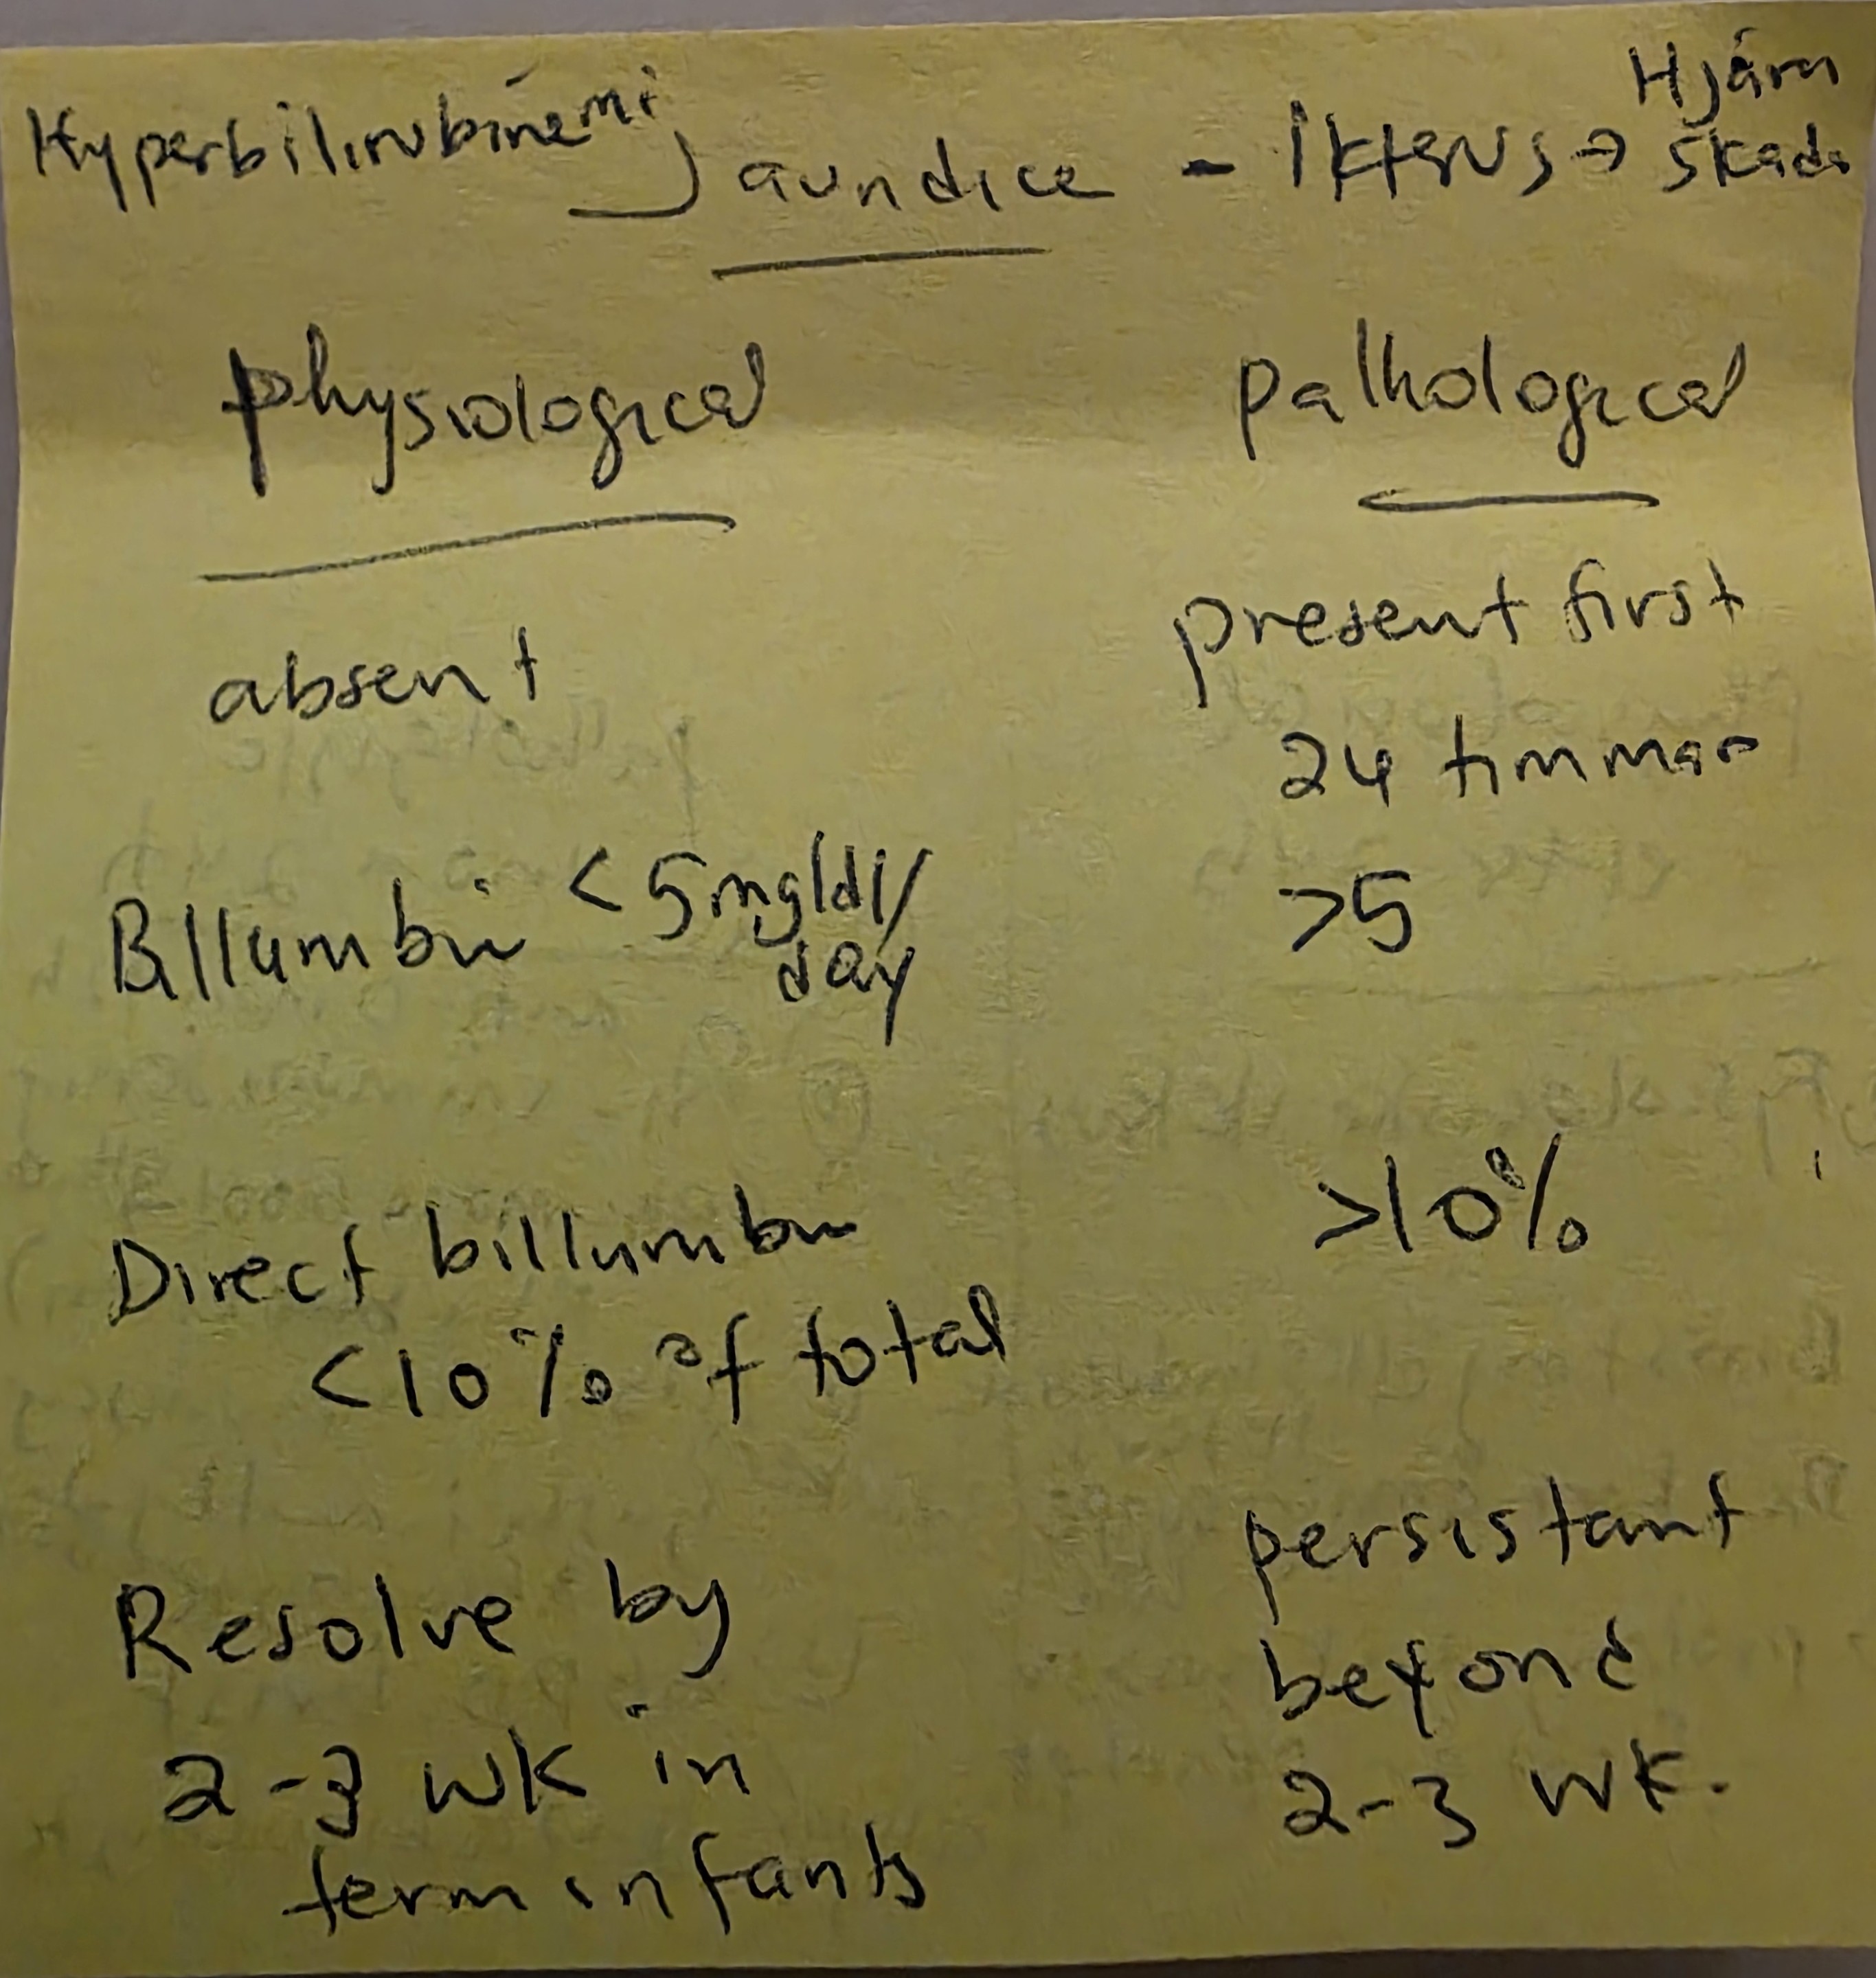 Hyperbilirubinemi Jaundice - Ikterus → Hjärn skada
physiological
pathological
absent
present first
24 timmar
Billumbin <5mg/dl/
day
>5
Direct billumbin
<10% of total
>10%
Resolve by
2-3 wk in
term infants
persistant
beyond
2-3 wk.